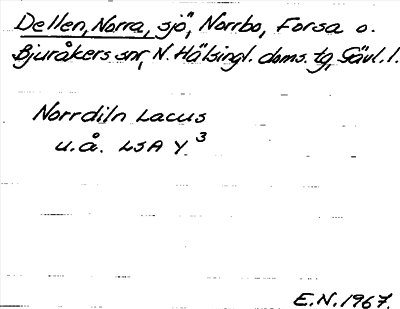 Dellen, Norra, sjö, Norrbo, Forsa o.
Bjuråkers snr, N. Hälsingl. doms. tg, Gävl. l.
Norrdiln Lacus
u.å. LSA Y 3
E.N. 1967.